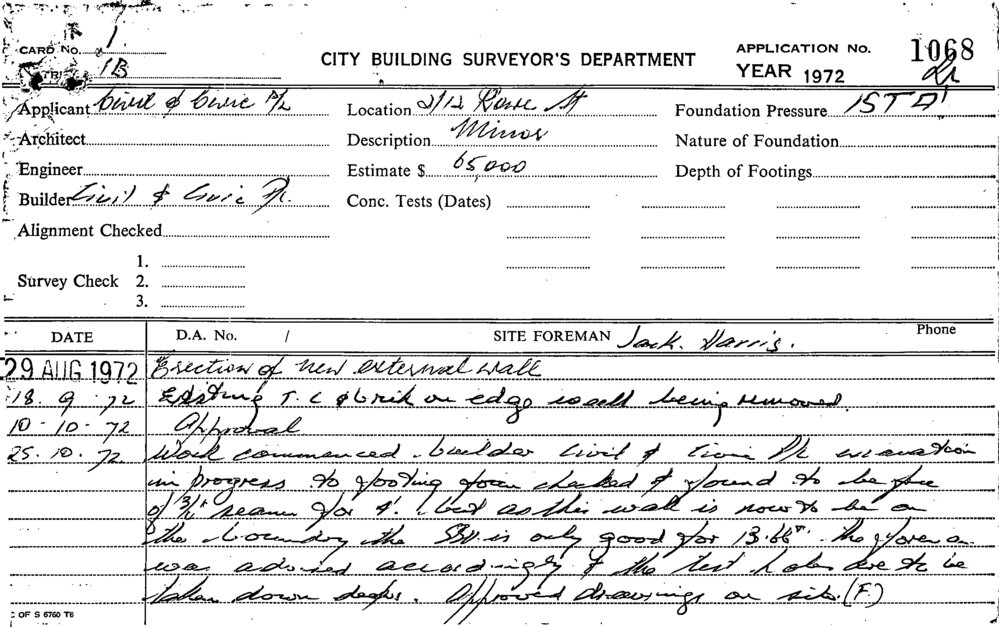 CARD No. 1
1B
CITY BUILDING SURVEYOR'S DEPARTMENT
APPLICATION No. 1068
YEAR 1972
Applicant Civil & Civic P/L
Location 2/12 Rowe St
Foundation Pressure 15T
Architect
Description Minor
Nature of Foundation
Engineer
Estimate $ 65,000
Depth of Footings
Builder Civil & Civic P/L.
Conc. Tests (Dates)
Alignment Checked
Survey Check 1.
2.
3.
DATE D.A. No. / SITE FOREMAN Jack. Harris. Phone
29 AUG 1972 Erection of new external wall
18. 9. 72 Existing T. C & brik on edge wall being removed.
10-10-72 Approval
25. 10. 72 Work commenced. builder Civil & Civic P/L excavation
in progress to footing checked & found to be free
of seams for 4'. but as this wall is now to be on
the boundary the is only good for the
was advised accordingly & the test holes are to be
taken down deeper. Approved drawings on site. (F)
C OF S 6760 T6